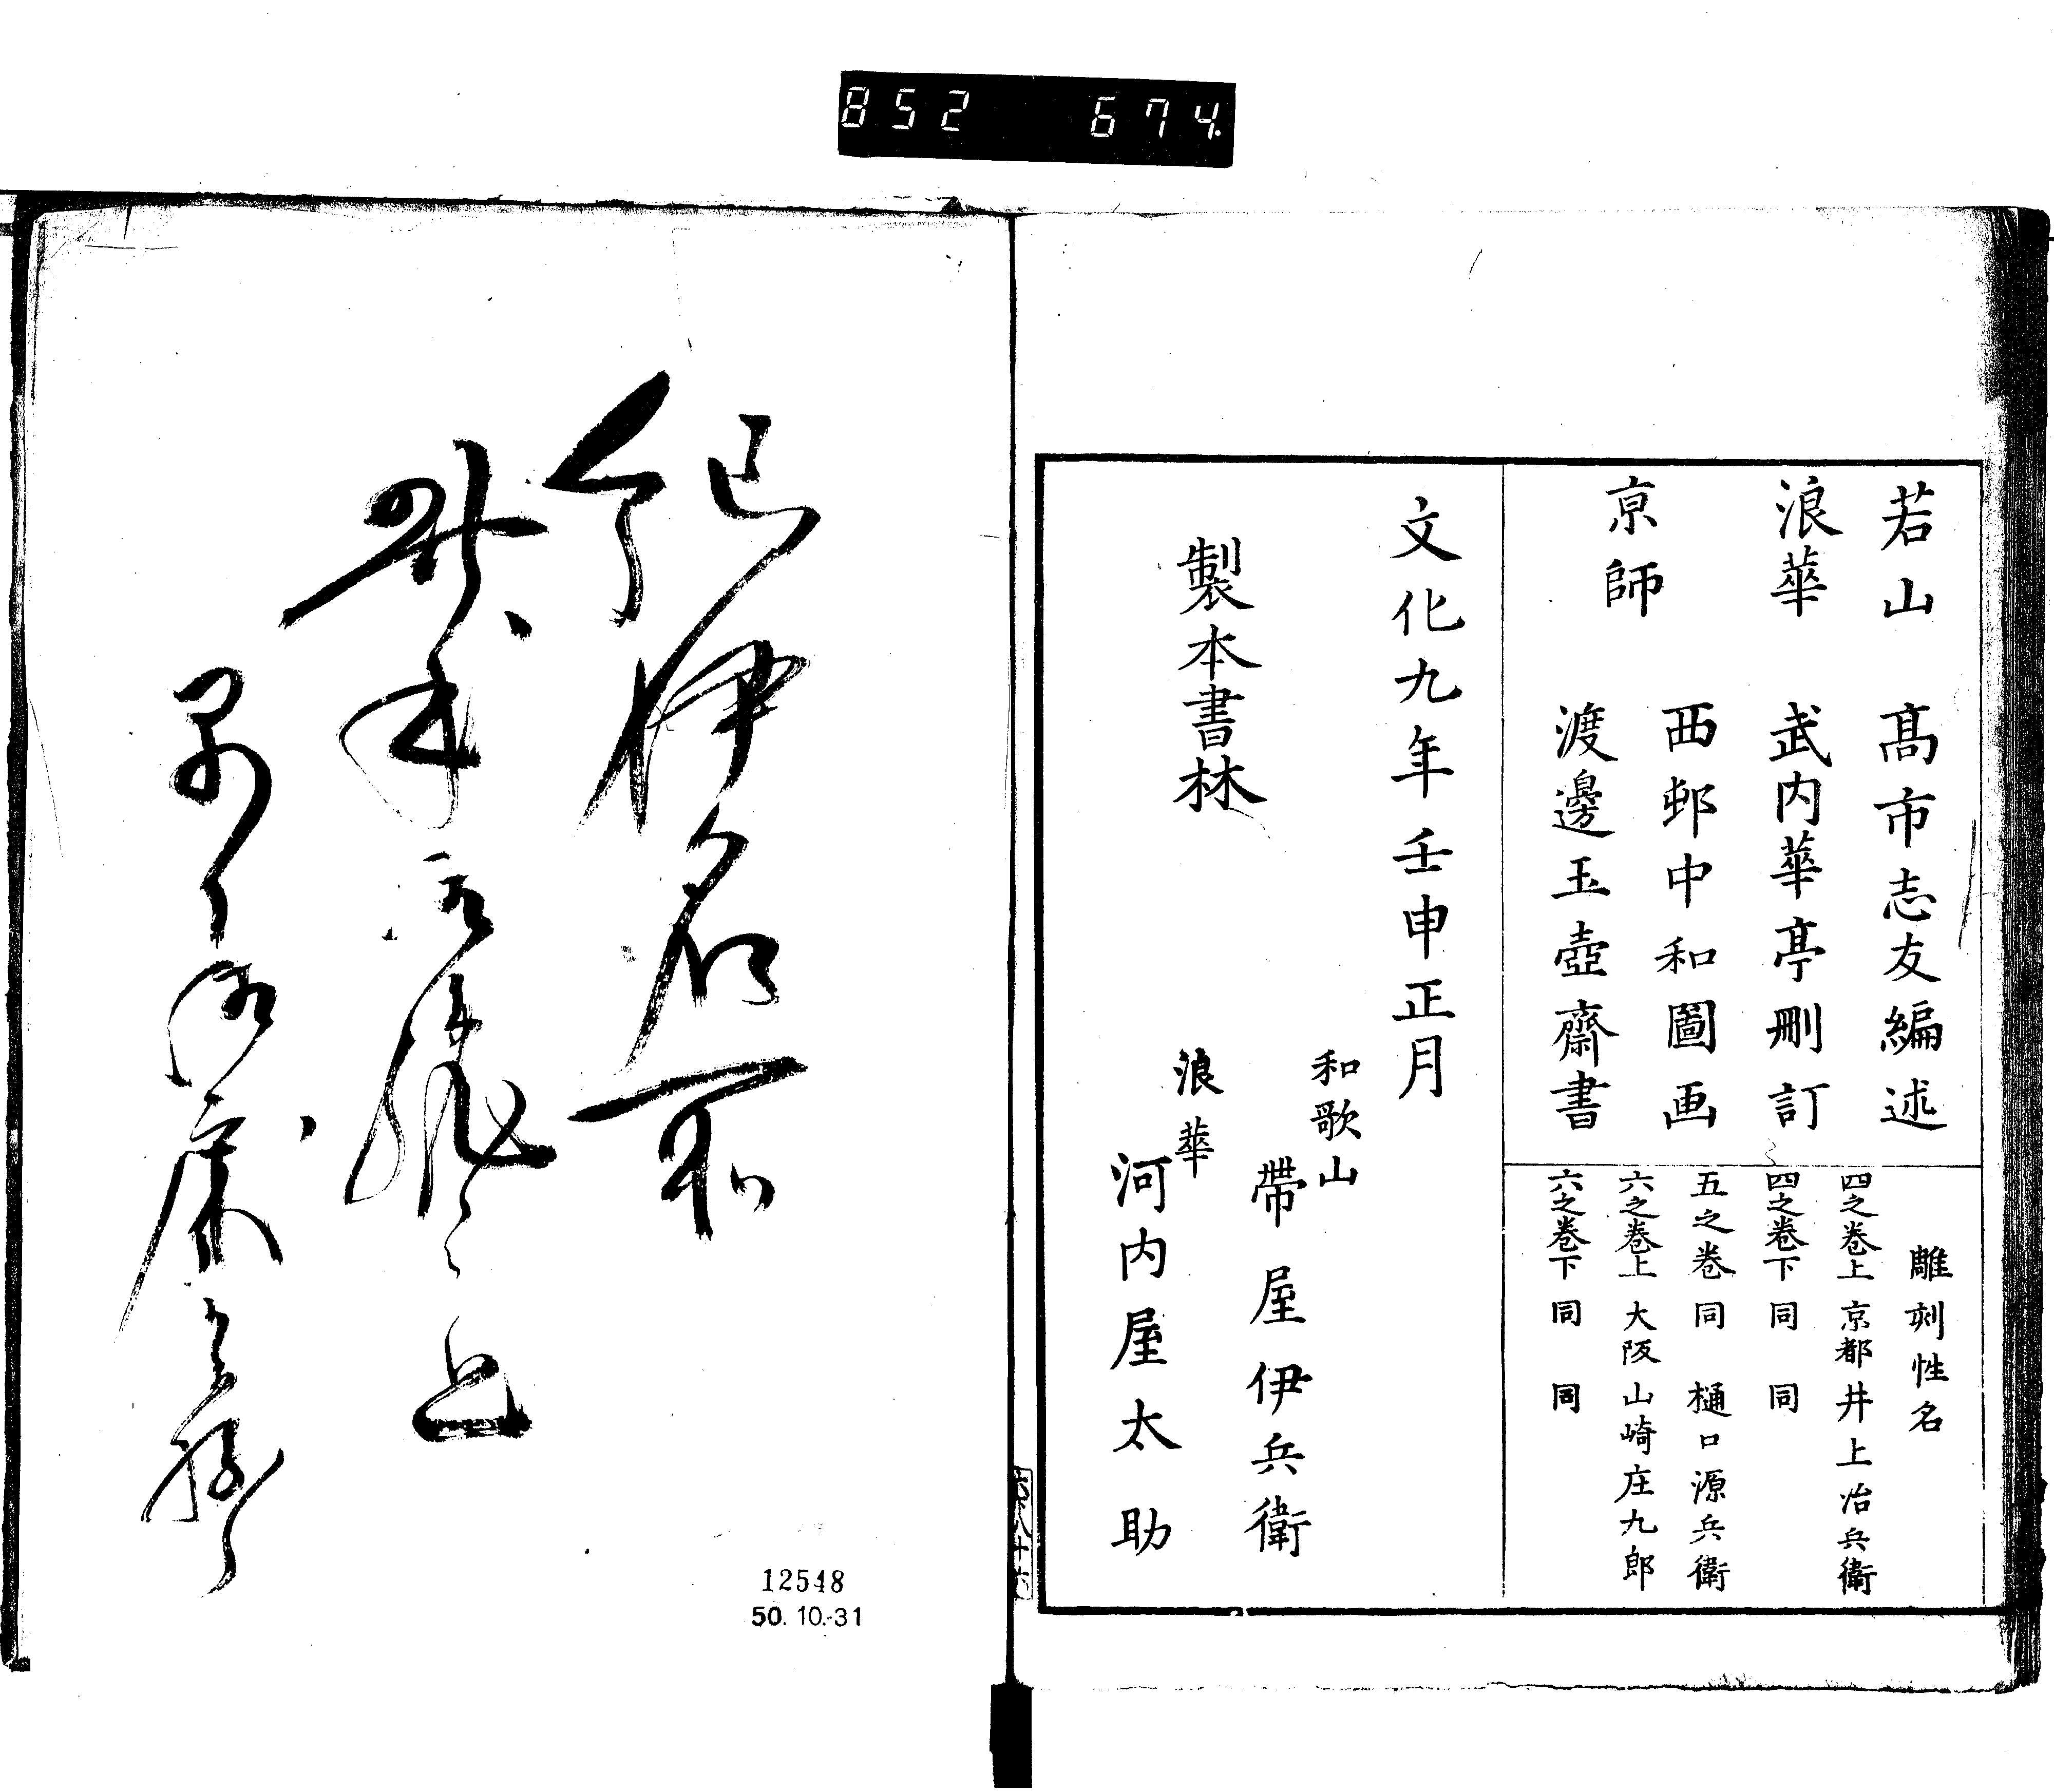 852 674
若山 髙市志友編述
浪華 武内華亭刪訂
京師
西邨中和圖画
渡邊玉壺齋書
雕刻性名
四之巻上 京都 井上治兵衛
四之巻下 同 同
五之巻 同 樋口源兵衛
六之巻上 大阪 山崎庄九郎
六之巻下 同 同
文化九年壬申正月
製本書林
和歌山
帶屋伊兵衛
浪華
河内屋太助
紀伊名所
12548
50.10.-31